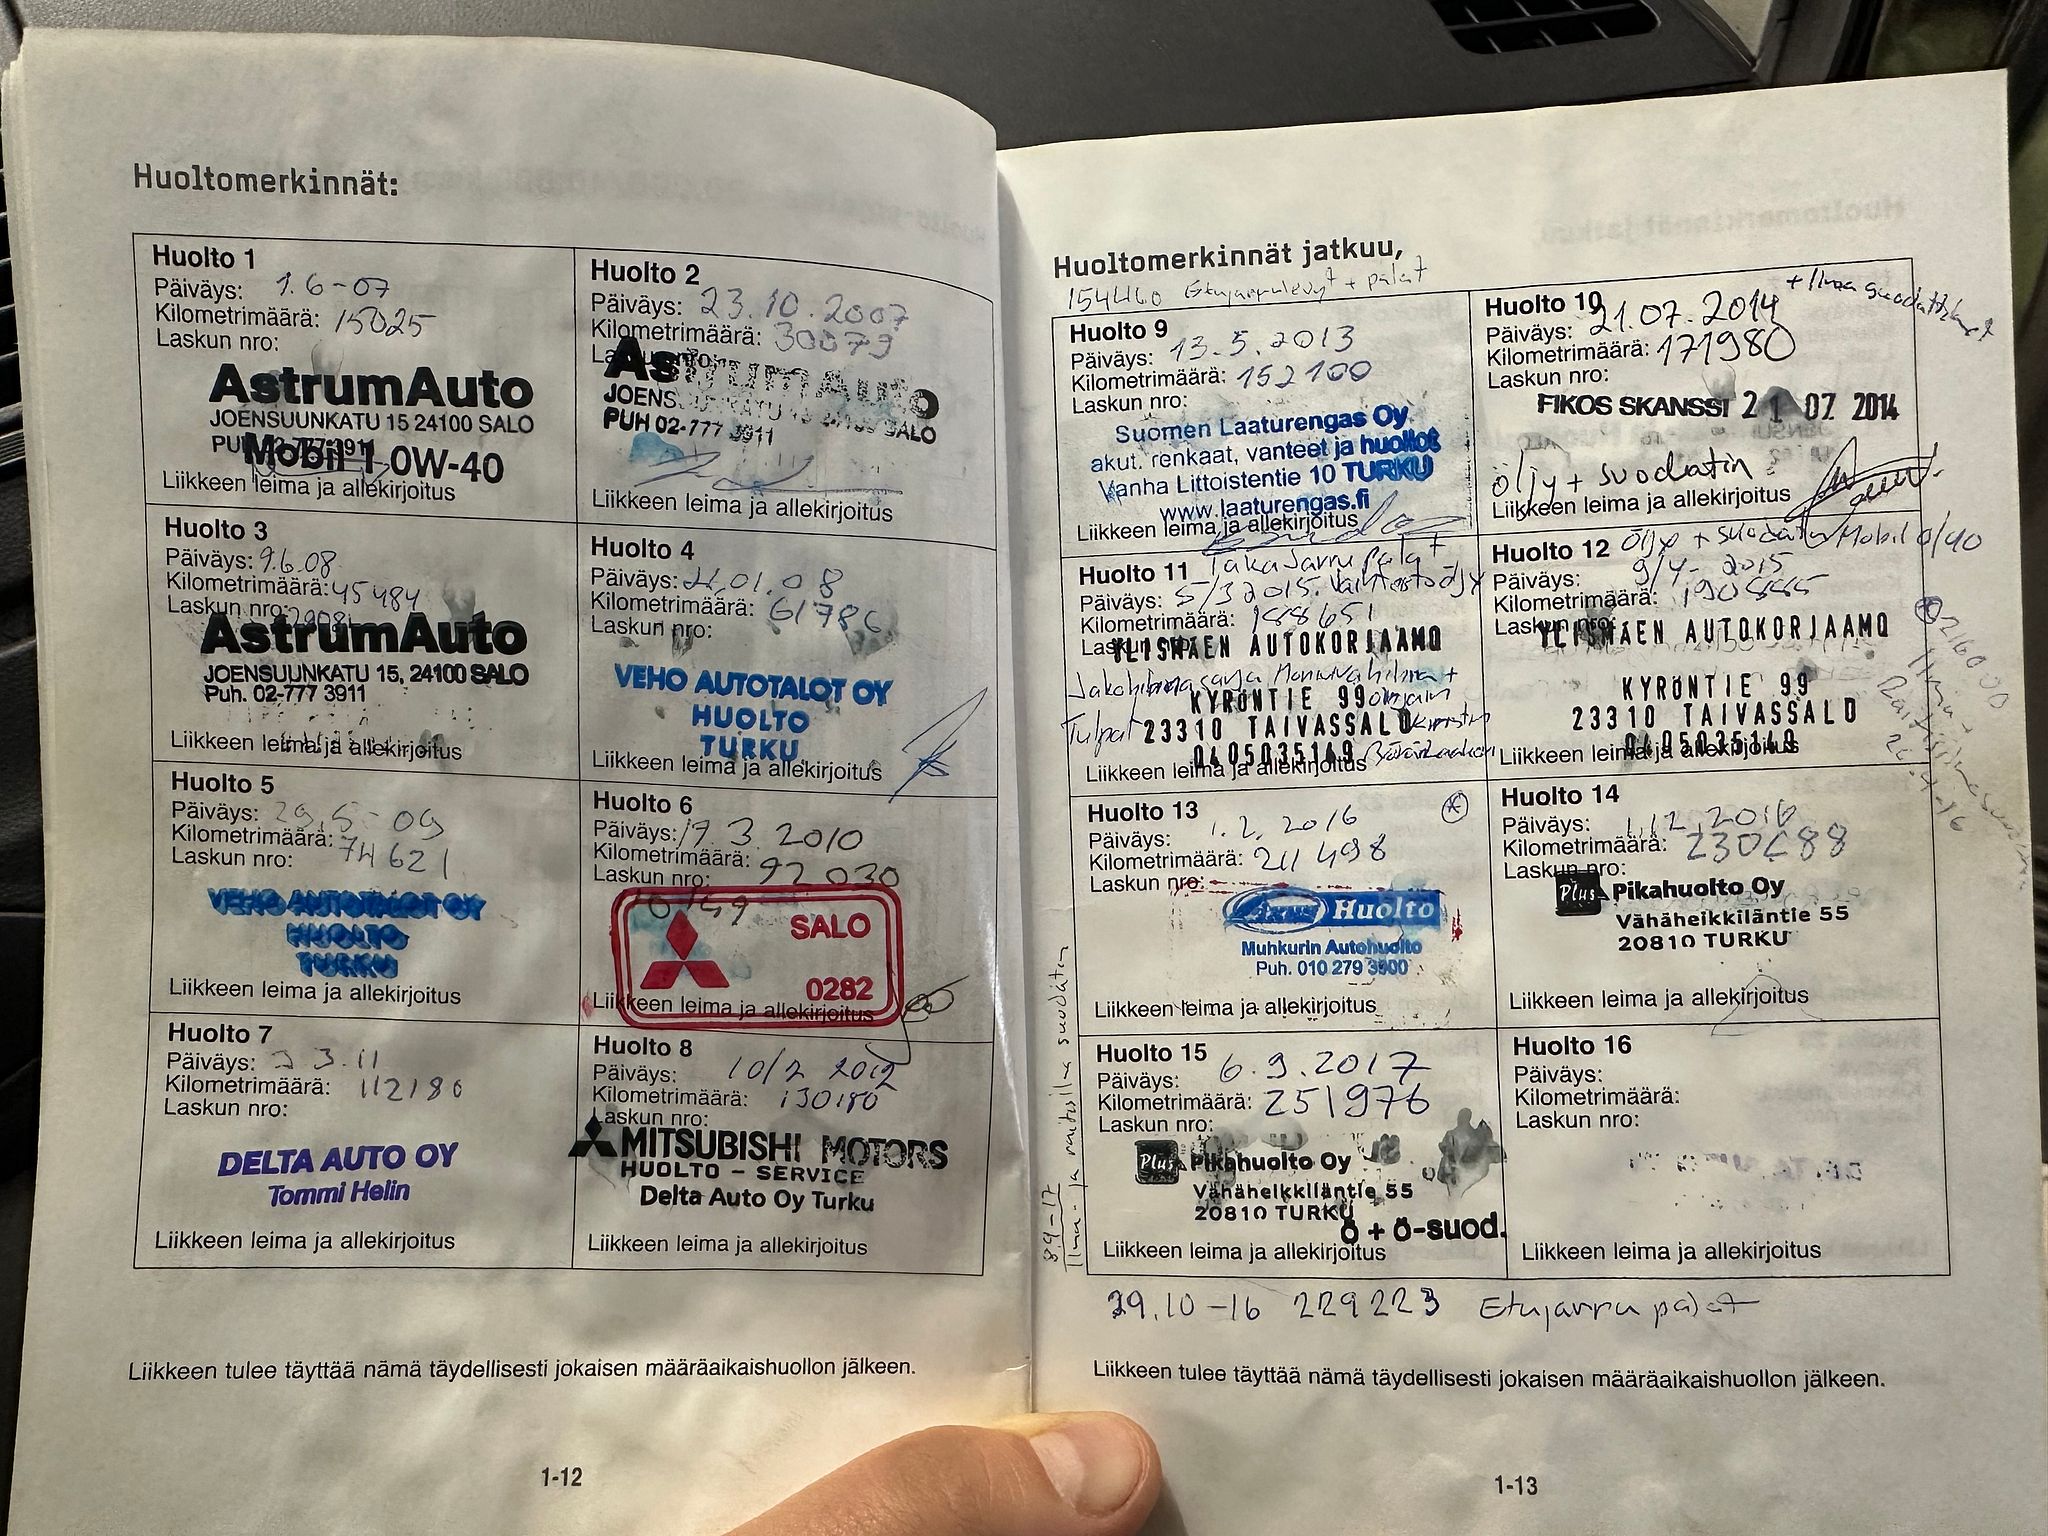 Huoltomerkinnät:
Huolto 1
Päiväys: 1.6-07
Kilometrimäärä: 15025
Laskun nro:
AstrumAuto
JOENSUUNKATU 15 24100 SALO
PUH 02-777 3911
Mobil 1 0W-40
Liikkeen leima ja allekirjoitus
Huolto 2
Päiväys: 23.10.2007
Kilometrimäärä: 30079
Laskun nro:
AstrumAuto
JOENSUUNKATU 15 24100 SALO
PUH 02-777 3911
Liikkeen leima ja allekirjoitus
Huolto 3
Päiväys: 9.6.08
Kilometrimäärä: 45484
Laskun nro:
AstrumAuto
JOENSUUNKATU 15, 24100 SALO
Puh. 02-777 3911
Liikkeen leima ja allekirjoitus
Huolto 4
Päiväys: 01.08
Kilometrimäärä: 61786
Laskun nro:
VEHO AUTOTALOT OY
HUOLTO
TURKU
Liikkeen leima ja allekirjoitus
Huolto 5
Päiväys: 29.5-09
Kilometrimäärä: 74621
Laskun nro:
VEHO AUTOTALOT OY
HUOLTO
TURKU
Liikkeen leima ja allekirjoitus
Huolto 6
Päiväys: 19.3.2010
Kilometrimäärä: 92030
Laskun nro:
SALO
0282
Liikkeen leima ja allekirjoitus
Huolto 7
Päiväys: 2 3.11
Kilometrimäärä: 112180
Laskun nro:
DELTA AUTO OY
Tommi Helin
Liikkeen leima ja allekirjoitus
Huolto 8
Päiväys: 10/2 2012
Kilometrimäärä: 130180
Laskun nro:
MITSUBISHI MOTORS
HUOLTO - SERVICE
Delta Auto Oy Turku
Liikkeen leima ja allekirjoitus
Liikkeen tulee täyttää nämä täydellisesti jokaisen määräaikaishuollon jälkeen.
1-12
Huoltomerkinnät jatkuu,
154460 Etujarrulevyt + palat
Huolto 9
Päiväys: 13.5.2013
Kilometrimäärä: 152100
Laskun nro:
Suomen Laaturengas Oy
akut. renkaat, vanteet ja huollot
Vanha Littoistentie 10 TURKU
www.laaturengas.fi
Liikkeen leima ja allekirjoitus
Huolto 10
+ Ilma suodattimet
Päiväys: 21.07.2014
Kilometrimäärä: 171980
Laskun nro:
FIKOS SKANSSI 21 07 2014
öljy + suodatin
Liikkeen leima ja allekirjoitus
Huolto 11 Taka Jarru palat
Päiväys: 5/3 2015. Vaihteistoöljy
Kilometrimäärä: 188651
Laskun nro:
YLISMÄEN AUTOKORJAAMO
Jakohihnasarja Monivahihna +
KYRÖNTIE 99
Tulpat
23310 TAIVASSALO
0405035149
Liikkeen leima ja allekirjoitus
Huolto 12 Öljy + suodatin Mobil 0/40
Päiväys: 9/4-2015
Kilometrimäärä:
Laskun nro:
YLISMÄEN AUTOKORJAAMO
KYRÖNTIE 99
23310 TAIVASSALO
0405035149
Liikkeen leima ja allekirjoitus
Huolto 13
Päiväys: 1.2.2016
Kilometrimäärä: 211498
Laskun nro:
Huolto
Muhkurin Autohuolto
Puh. 010 279 3900
Liikkeen leima ja allekirjoitus
Huolto 14
Päiväys: 1.12.2016
Kilometrimäärä: 230688
Laskun nro:
Plus Pikahuolto Oy
Vähäheikkiläntie 55
20810 TURKU
Liikkeen leima ja allekirjoitus
Huolto 15
Päiväys: 6.9.2017
Kilometrimäärä: 251976
Laskun nro:
Plus Pikahuolto Oy
Vähäheikkiläntie 55
20810 TURKU
ö + ö-suod.
Liikkeen leima ja allekirjoitus
Huolto 16
Päiväys:
Kilometrimäärä:
Laskun nro:
Liikkeen leima ja allekirjoitus
8.9-17
Ilma- ja raitisilma suodatin
29.10-16 229223 Etujarru palat
Liikkeen tulee täyttää nämä täydellisesti jokaisen määräaikaishuollon jälkeen.
1-13